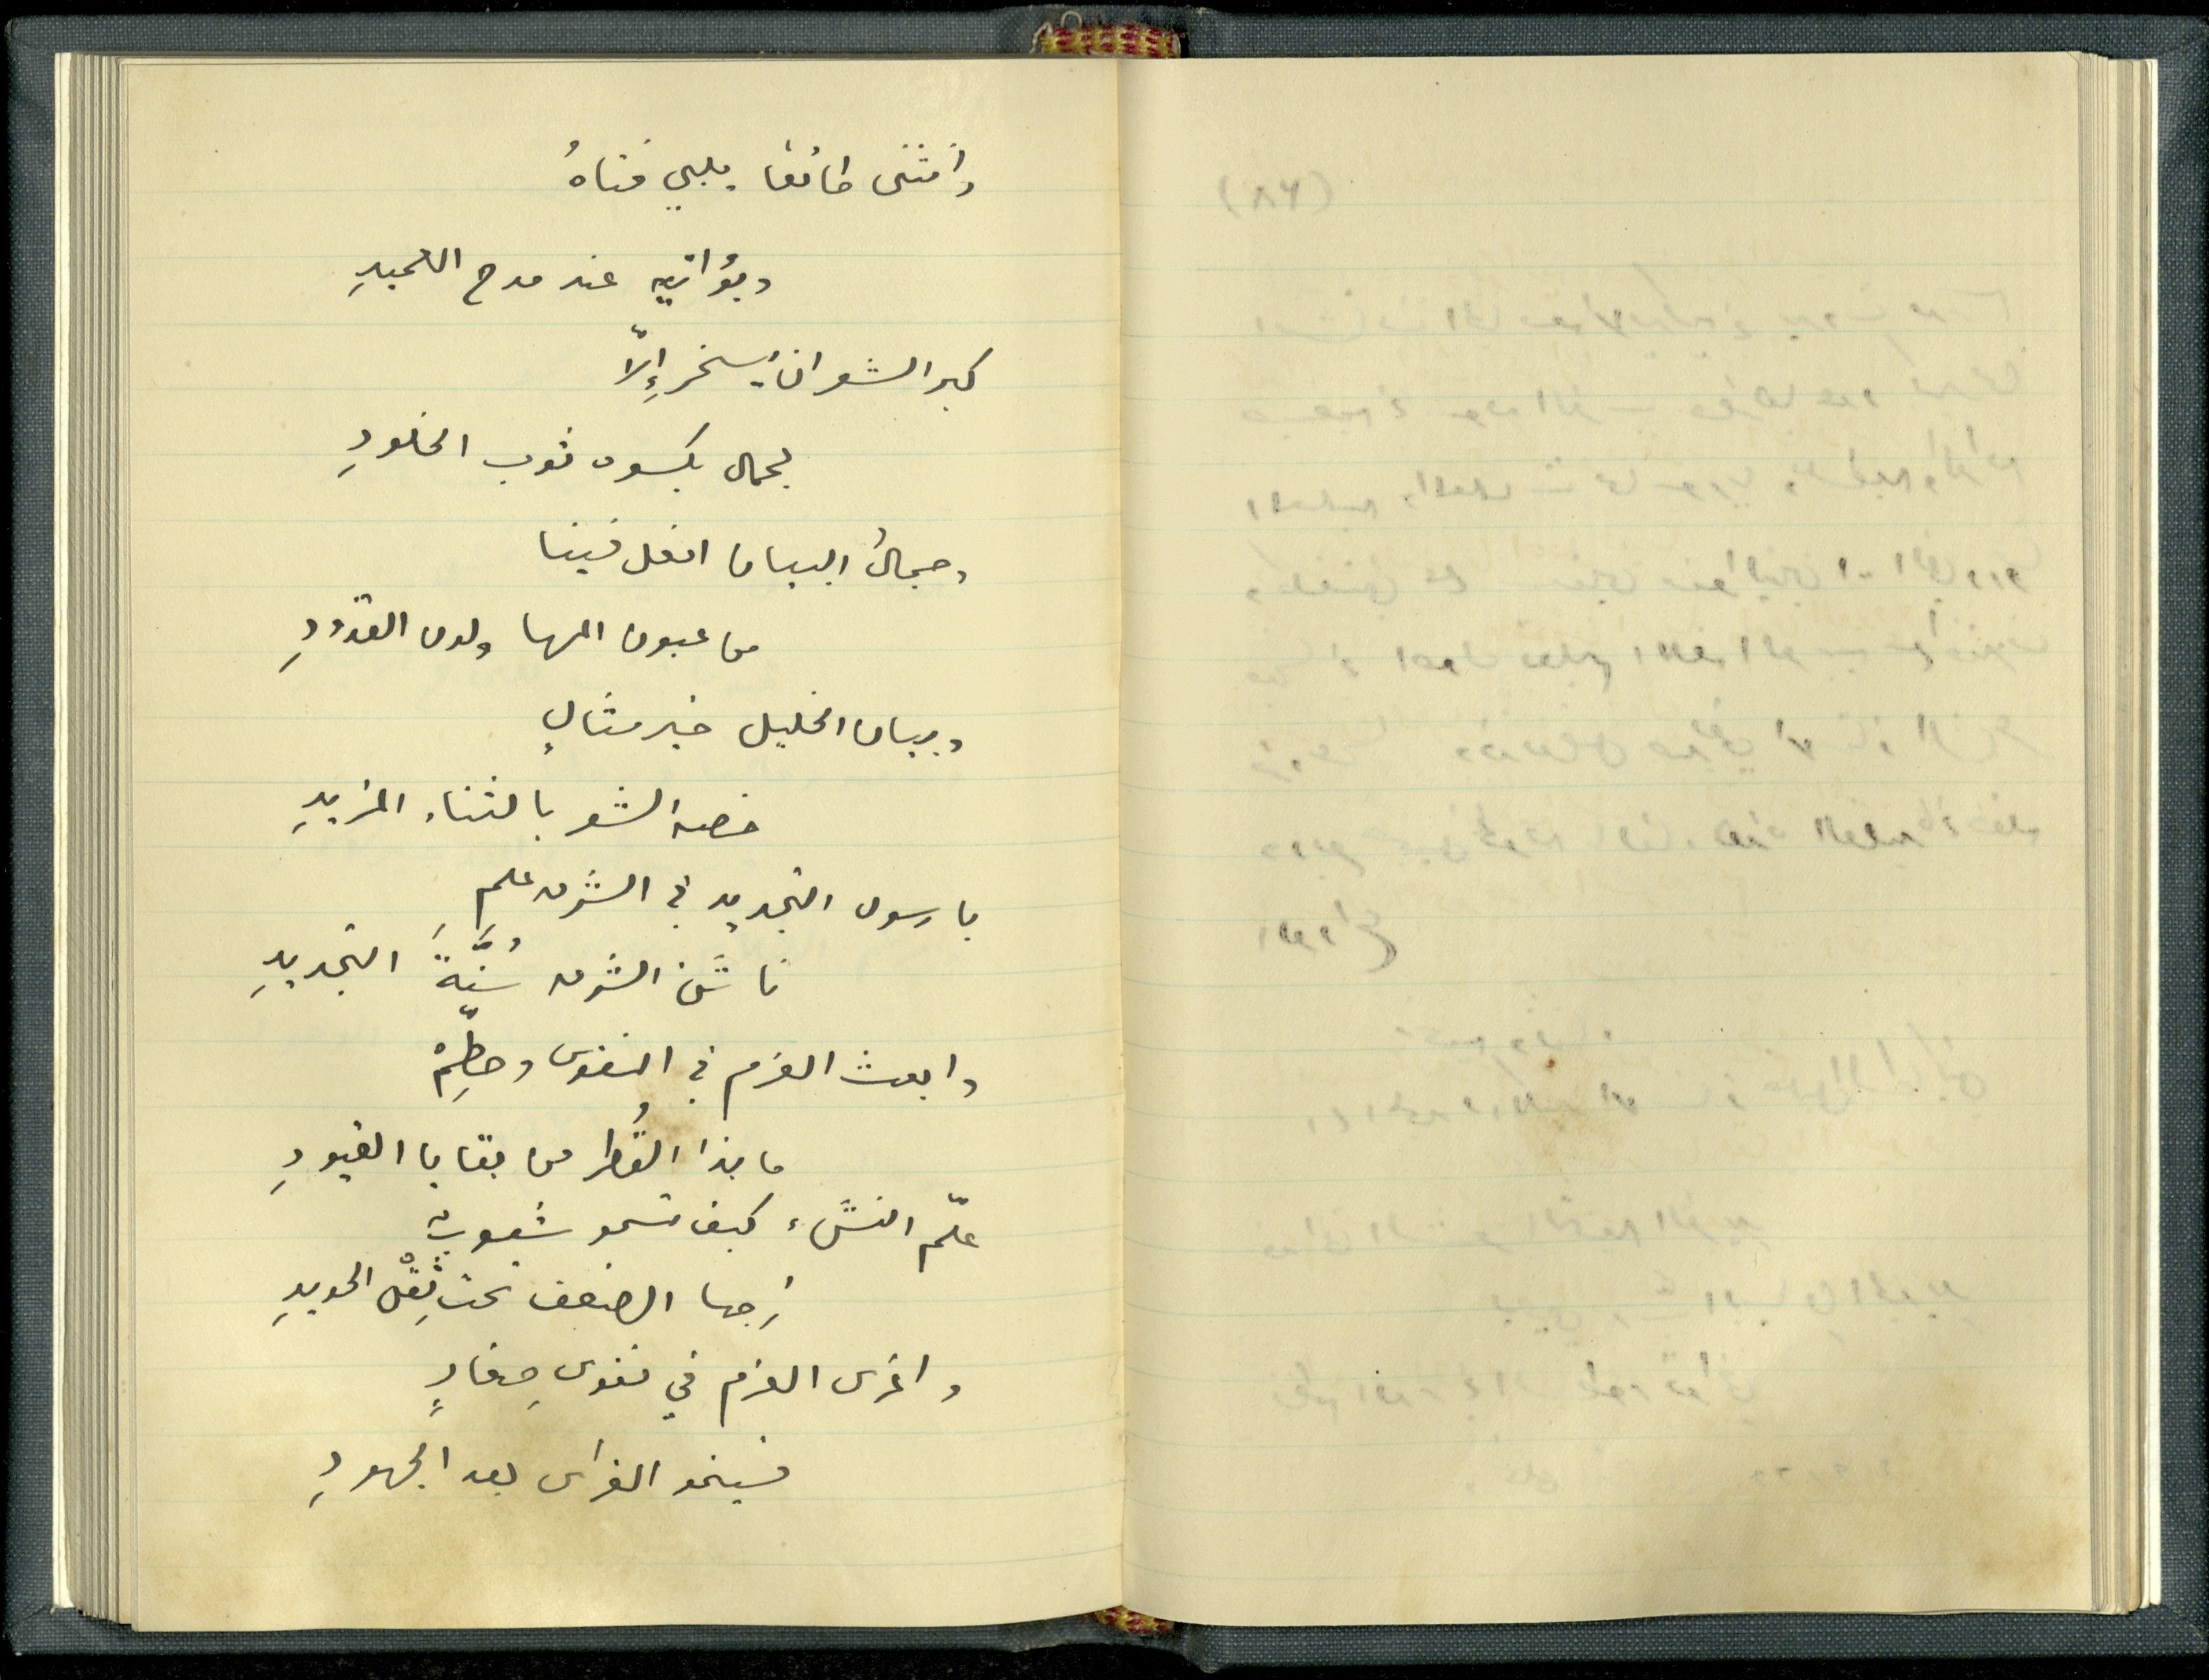 وانثنى طائعًا يلبي فتاهُ
ويؤاتيه عند مدح العميدِ
كبر الشعر ان يُسخر إِلاّ
لجمال يكسوه ثوب الخلودِ
وجمالُ البيان افعل فينا
من عيون المها ولدن القدودِ
وبيان الخليل خير مثالٍ
خصه الشعر بالثناء المزيدِ
يا رسول التجديد في الشرق علمِ
ناشئ الشرق سُنَّةَ التجديدِ
وابعث العزم في النفوس وحطِّمْ
ما بذا القُطر من بقايا القيودِ
علّم النشَء كيف تسمو شعوبٌ
زجها الضعف تحت ثِقْل الحديدِ
واغرس العزم في نفوس صِغارٍ
فسينمو الغراس بعد الجهودِ